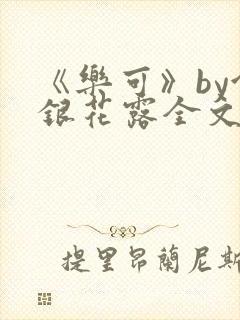 《樂可》by
銀花露全文
提里昂蘭尼斯